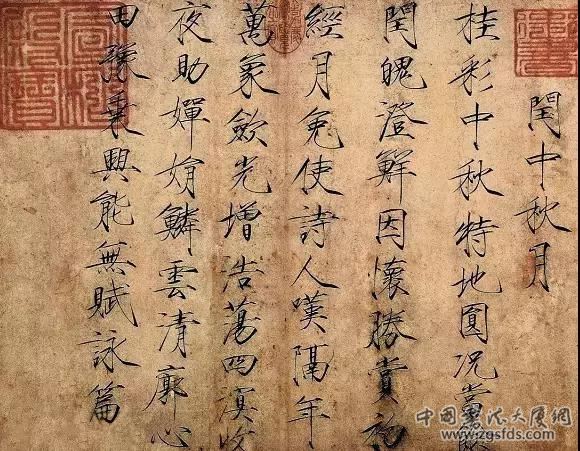 閏中秋月
桂彩中秋特地圓况當餘
閏魄澄鮮因懷勝賞初
經月免使詩人嘆隔年
萬象歛光增浩蕩四溟收
夜助嬋娟鱗雲清廓心
田豫乘興能無賦詠篇
中國書法大廈網
www.zgsfds.com